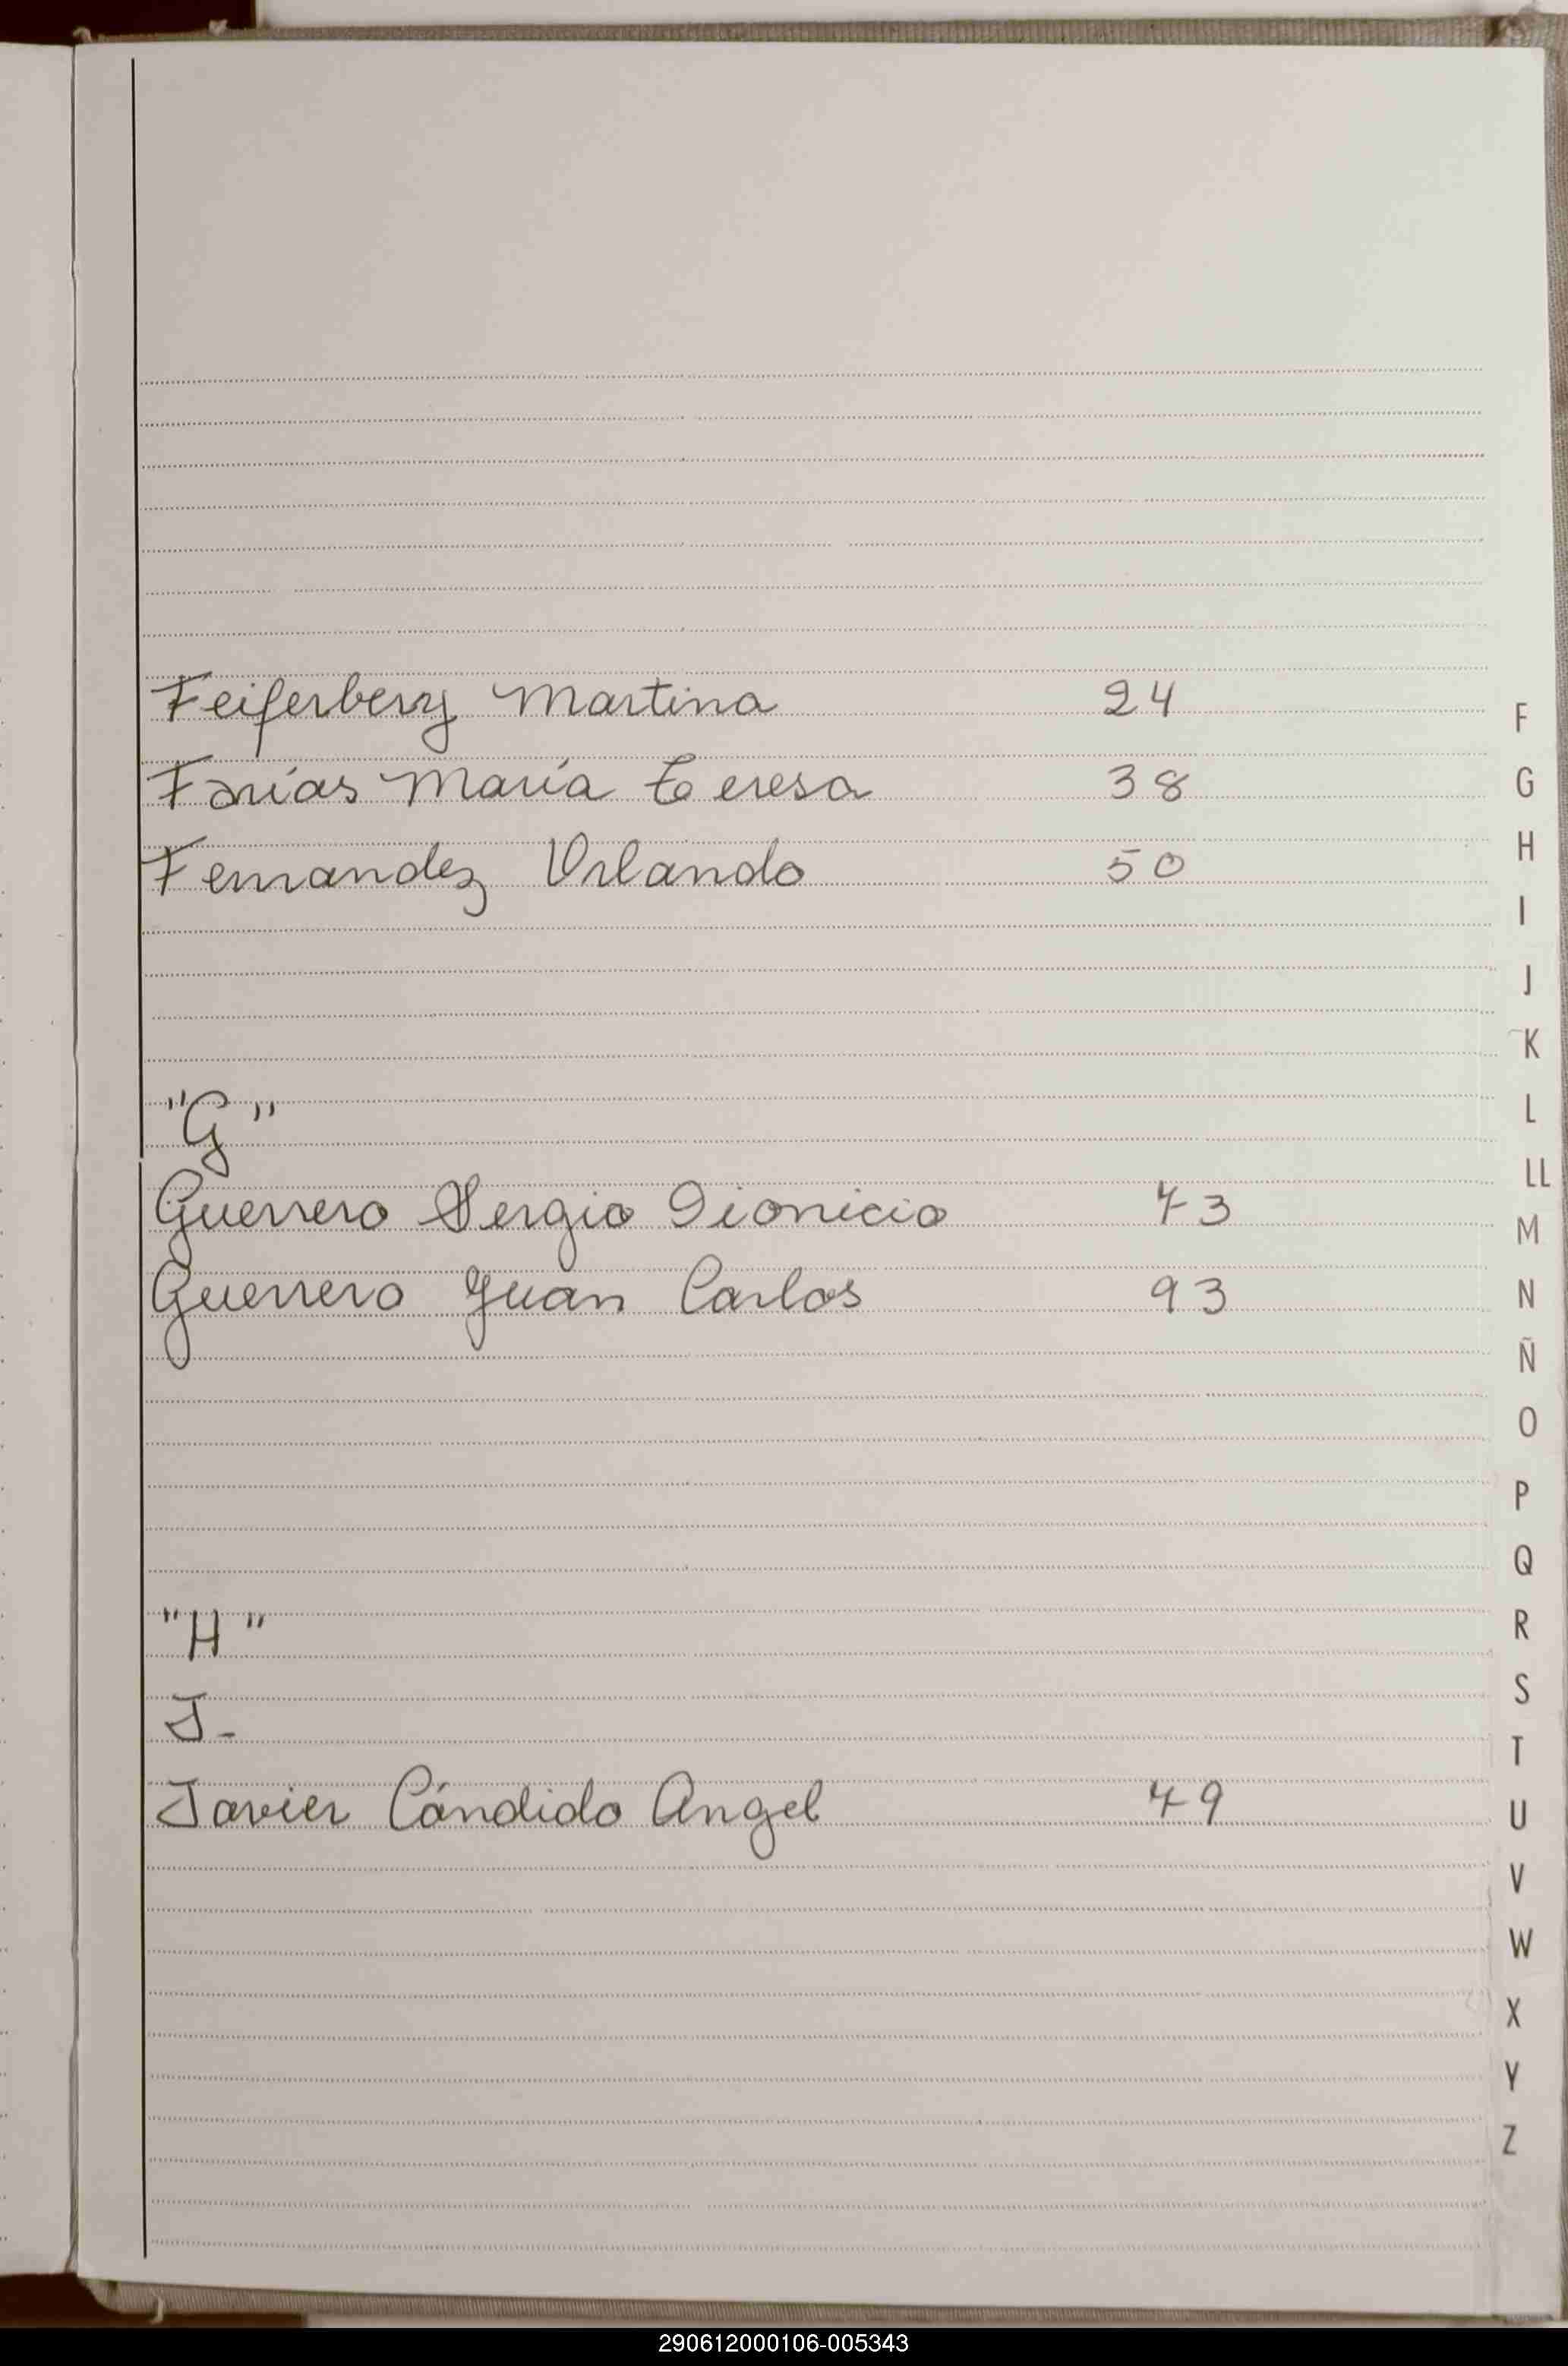 Feiferberg Martina 24
Farías María Teresa 38
Fernandez Orlando 50
"G"
Guerrero Sergio Dionicio 43
Guerrero Juan Carlos 93
"H"
J-
Javier Cándido Angel 49
F
G
H
I
J
K
L
LL
M
N
Ñ
O
P
Q
R
S
T
U
V
W
X
Y
Z
290612000106-005343